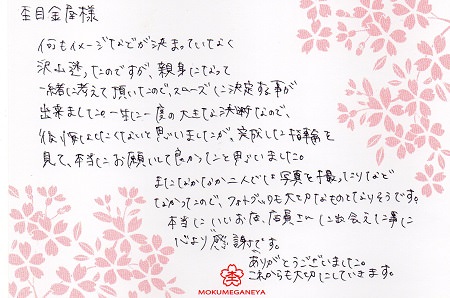 杢目金屋様
何もイメージなどが決まっていなく
沢山迷ったのですが、親身になって
一緒に考えて頂いたので、スムーズに決定する事が
出来ました。一生に一度の大きな決断なので、
後悔はしたくないと思いましたが、完成した指輪を
見て、本当にお願いして良かったと思いました。
またなかなか二人では写真を撮ったりなど
なかったので、フォトブックも大切なものとなりそうです。
本当にいいお店、店員さんに出会えた事に
心より感謝です。
ありがとうございました。
これからも大切にしていきます。
MOKUMEGANEYA